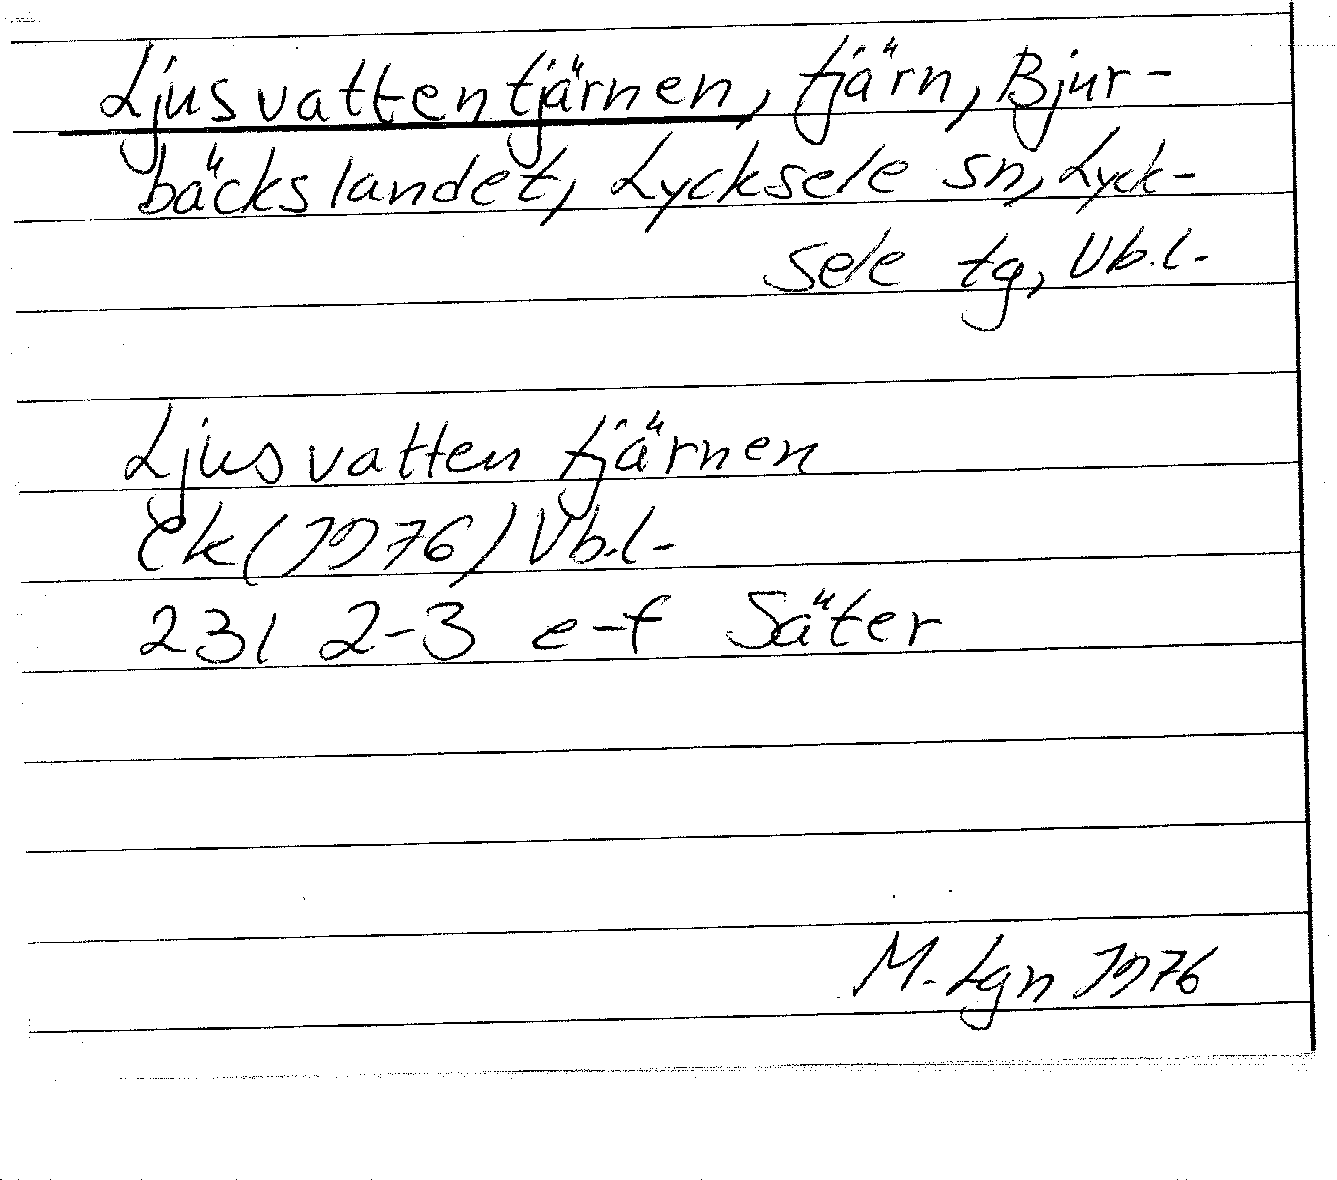 Ljusvattentjärnen, tjärn, Bjur-
bäckslandet, Lycksele sn, Lyck-
sele tg, Vb.l.
Ljusvattentjärnen
Ek (1976) Vb.l.
23I 2-3 e-f Säter
M. Lgn 1976